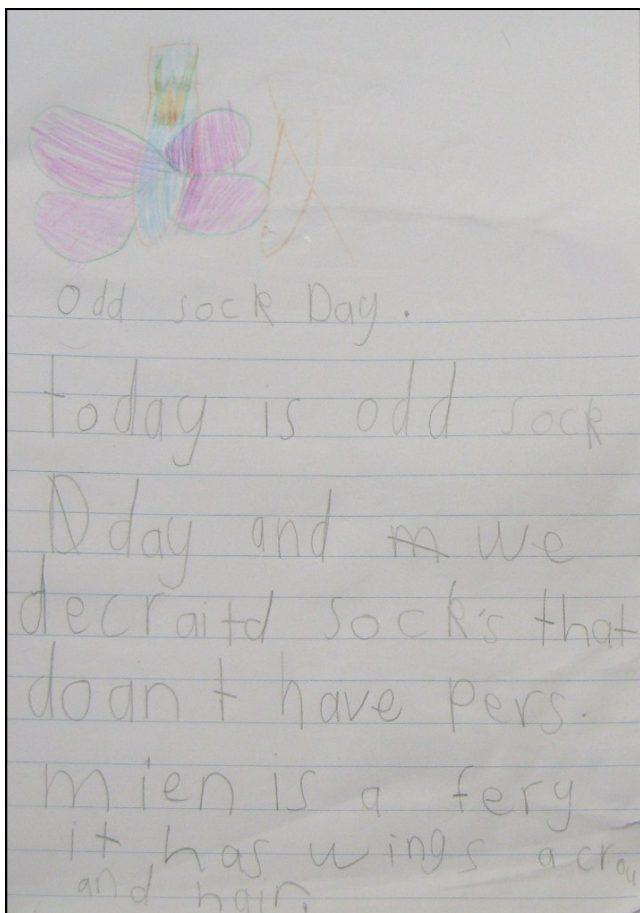 Odd sock Day.
today is odd sock
day and we
decraitd sock's that
doant have pers.
mien is a fery
it has wings a crou
and hair.